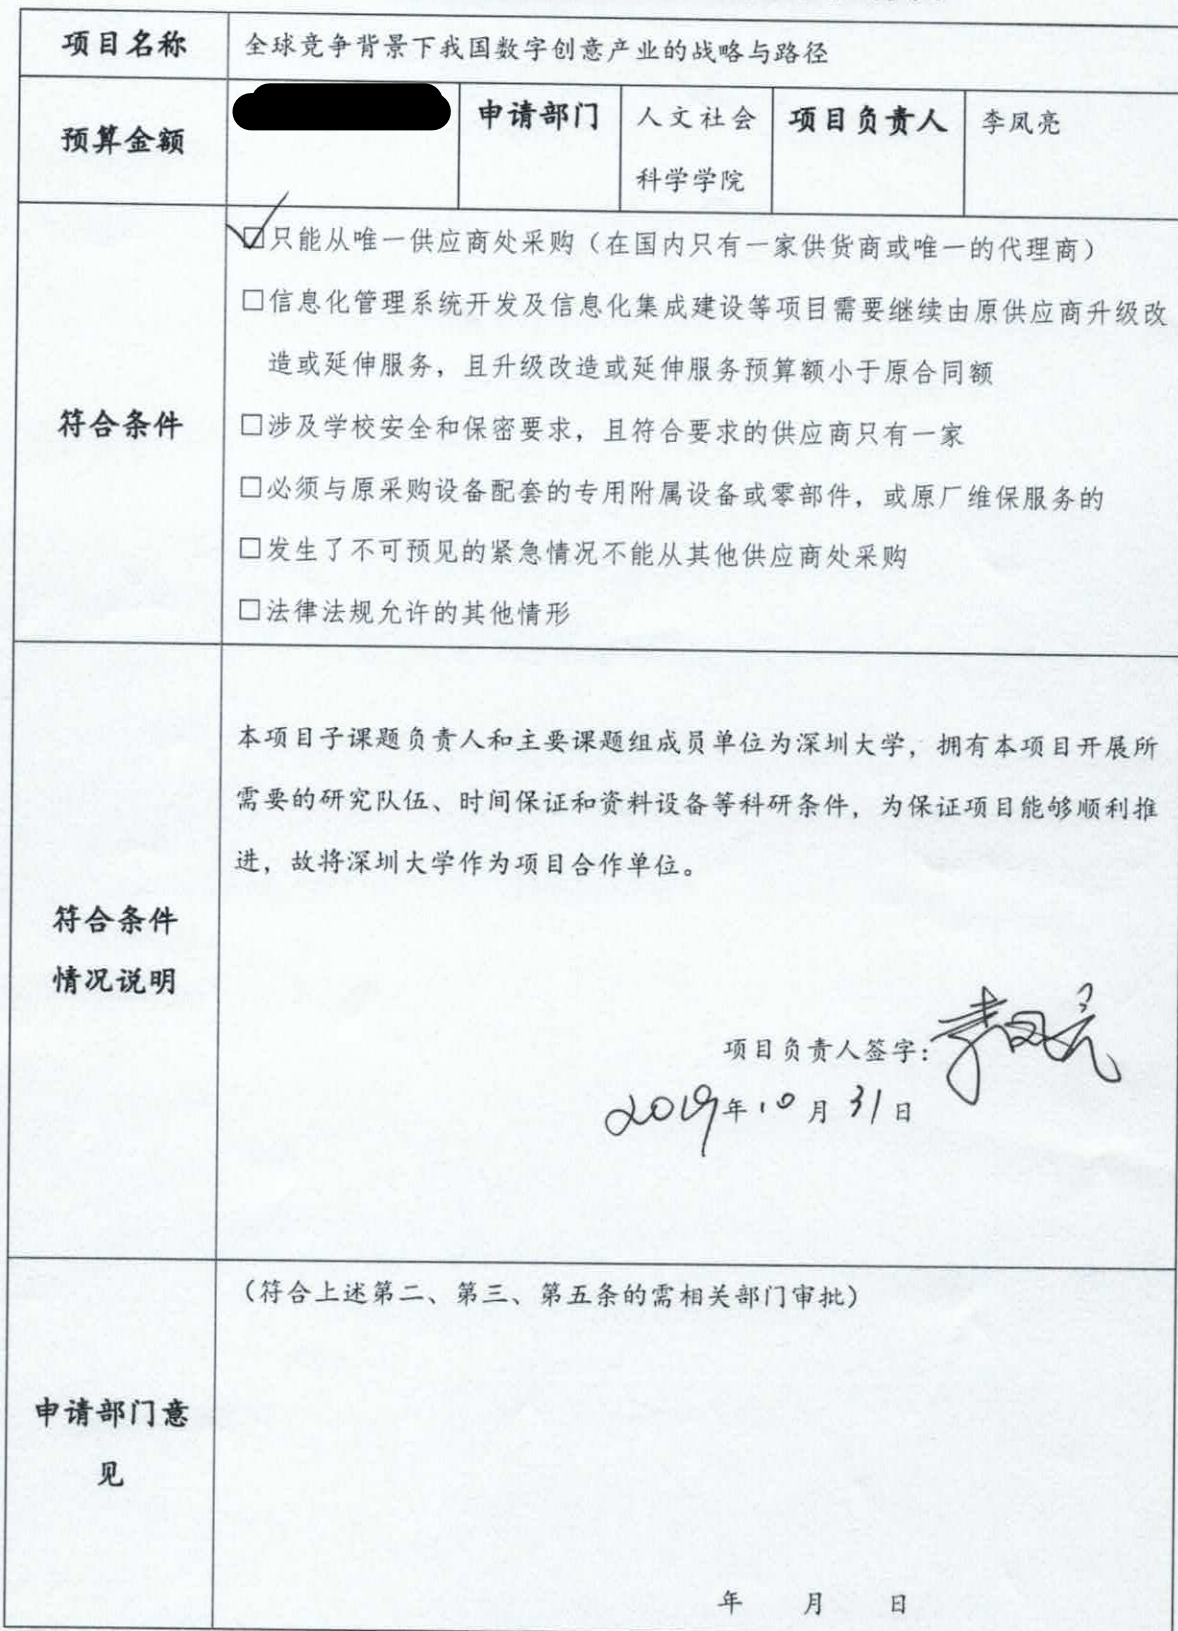 项目名称 全球竞争背景下我国数字创意产业的战略与路径
预算金额 申请部门 人文社会 项目负责人 李凤亮
科学学院
符合条件
☑只能从唯一供应商处采购（在国内只有一家供货商或唯一的代理商）
□信息化管理系统开发及信息化集成建设等项目需要继续由原供应商升级改
造或延伸服务，且升级改造或延伸服务预算额小于原合同额
□涉及学校安全和保密要求，且符合要求的供应商只有一家
□必须与原采购设备配套的专用附属设备或零部件，或原厂维保服务的
□发生了不可预见的紧急情况不能从其他供应商处采购
□法律法规允许的其他情形
符合条件
情况说明
本项目子课题负责人和主要课题组成员单位为深圳大学，拥有本项目开展所
需要的研究队伍、时间保证和资料设备等科研条件，为保证项目能够顺利推
进，故将深圳大学作为项目合作单位。
项目负责人签字：李凤亮
2019年10月31日
申请部门意
见
（符合上述第二、第三、第五条的需相关部门审批）
年 月 日